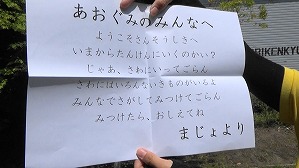 あおぐみのみんなへ
ようこそさんそうしきへ
いまからたんけんにいくのかい?
じゃあ、さわにいってごらん
さわにはいろんないきものがいるよ
みんなでさがしてみつけてごらん
みつけたら、おしえてね
まじょより
RIKENKYO